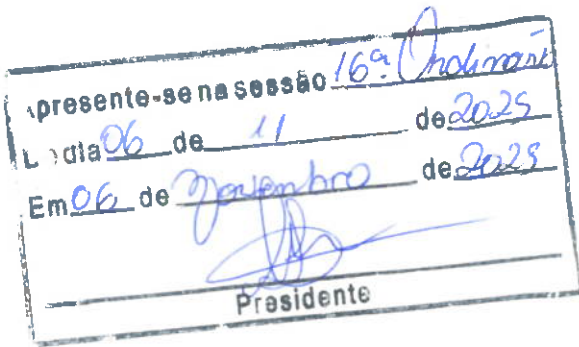 Apresente-se na sessão 16ª. Ordinári
Do dia 06 de 11 de 2025
Em 06 de novembro de 2025
Presidente